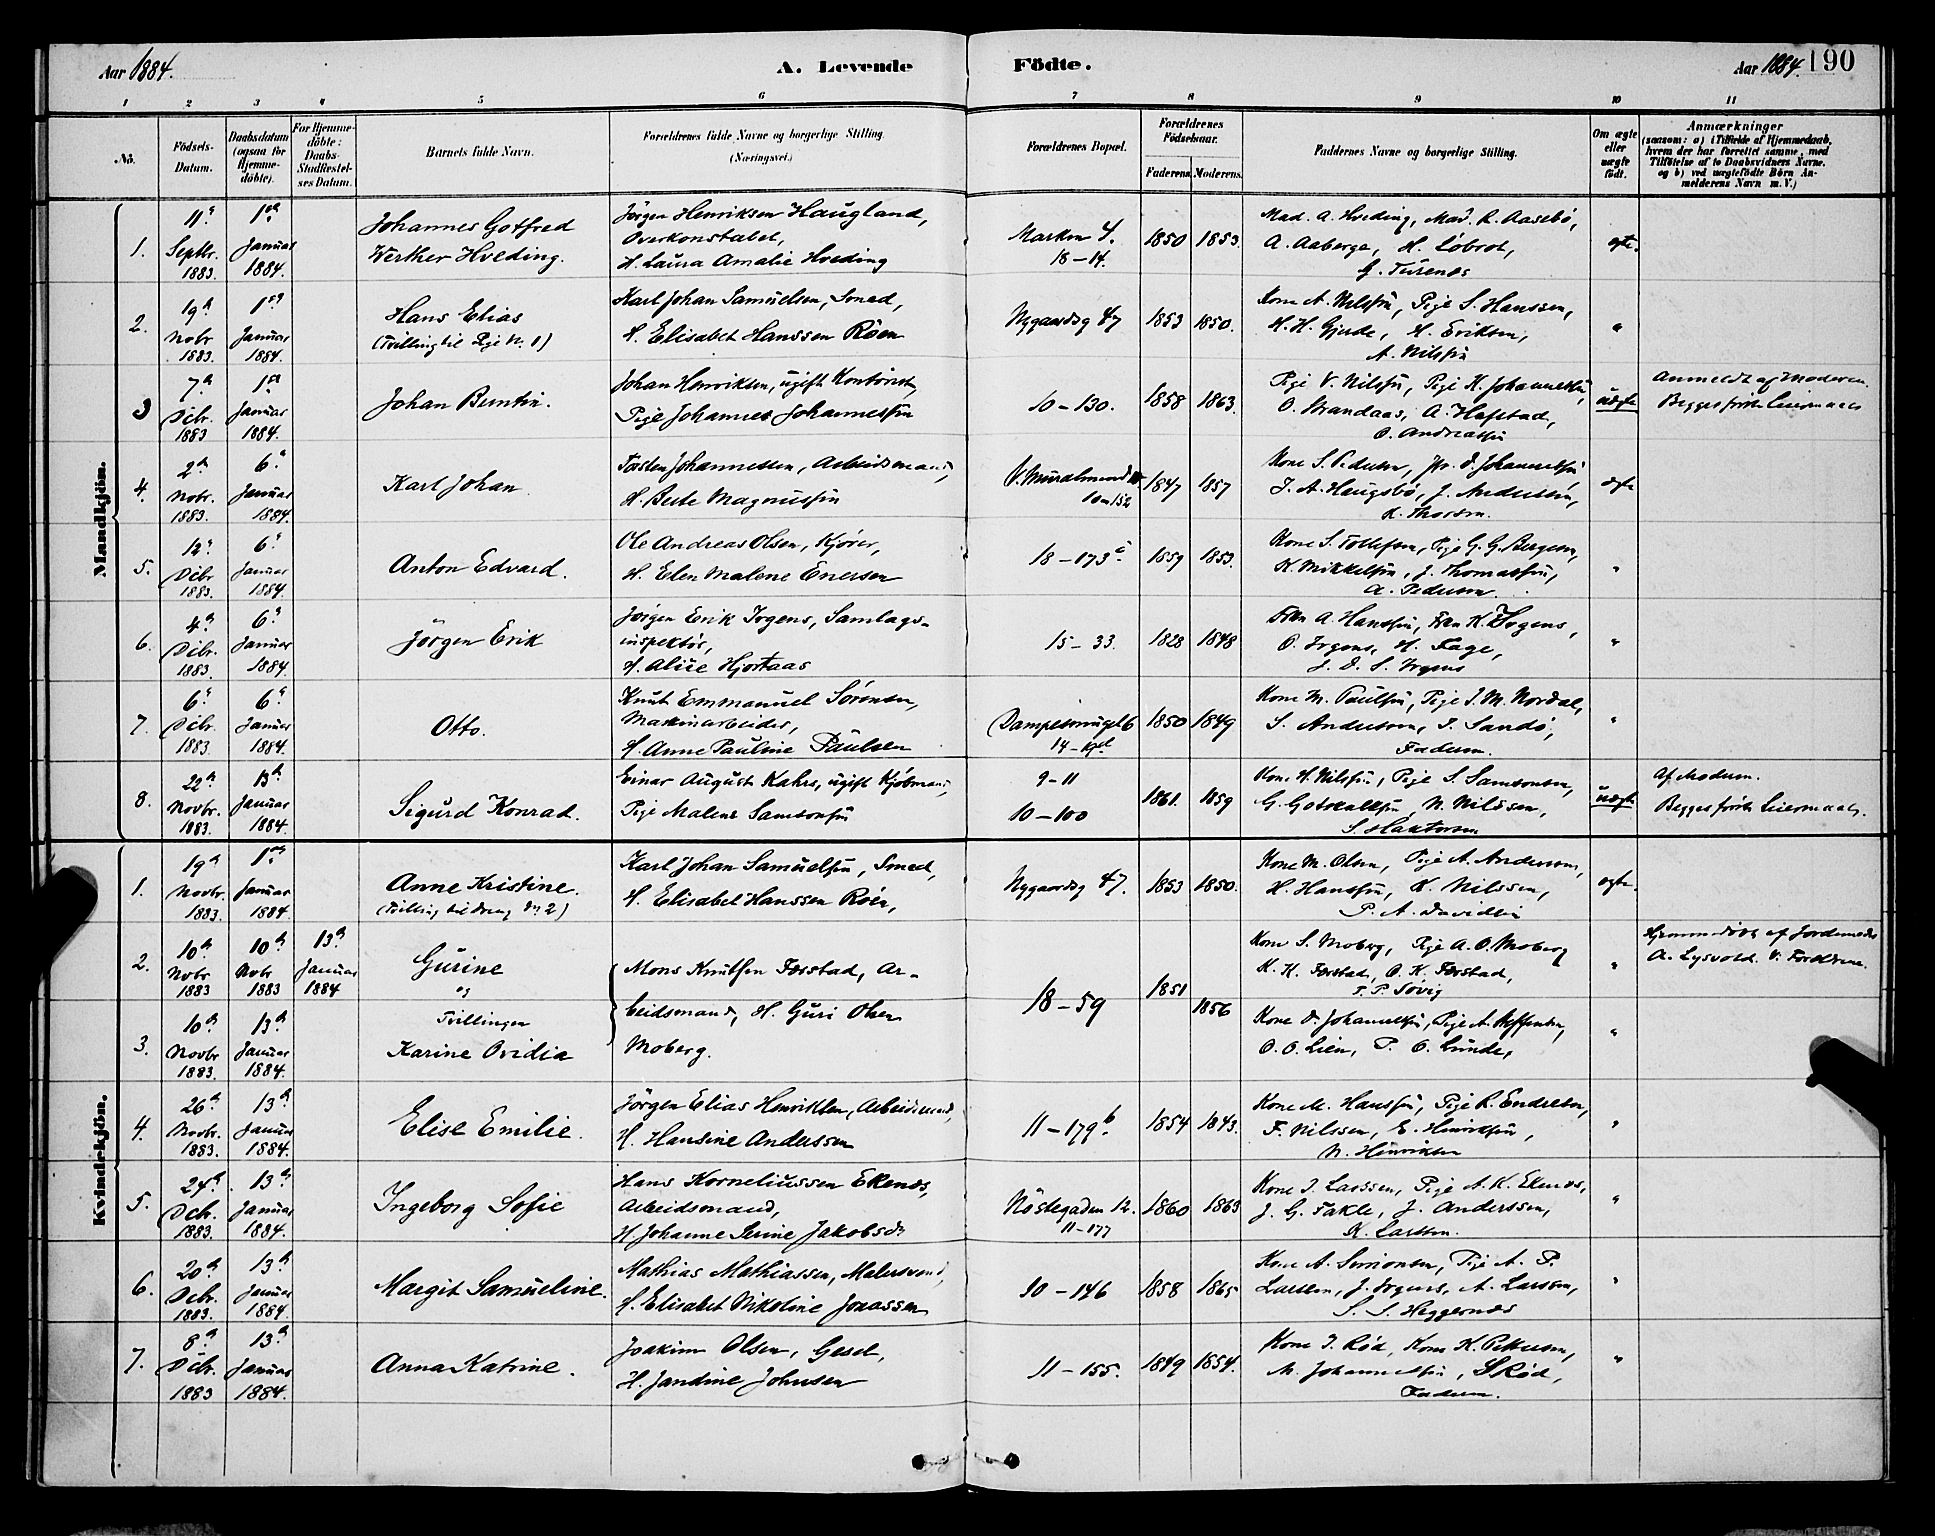 Aar 1884.
A. Levende Födte.
Aar 1884. 190
1 2 3 4 5 6 7 8 9 10 11
No.
Födsels-Datum.
Daabsdatum (ogsaa for Hjemme-döbte).
For Hjemme-döbte: Daabs-Stadfæstel-ses Datum.
Barnets fulde Navn.
Forældrenes fulde Navne og borgerlige Stilling. (Næringsvei.)
Forældrenes Bopæl.
Forældrenes Födselsaar.
Faderens. Moderens.
Faddernes Navne og borgerlige Stilling.
Om ægte eller uægte födt.
Anmærkninger
(saasom: a) i Tilfælde af Hjemmedaab, hvem der har forrettet samme, med Tilföielse af to Daabsvidners Navne, og b) ved uægtefödte Börn An-melderens Navn m. V.)
Mandkjön.
1. 11te Septbr. 1883. 1ste Januar 1884.
Johannes Gotfred
Werther Hveding.
Jörgen Henriksen Haugland,
Overkonstabel,
H. Laura Amalie Hveding
Marken 4.
18-14.
1850 1853.
Mad. A. Hveding, Mad. R. Aasebö,
A. Aaberge, H. Löbrot,
G. Turenes
egte.
2. 19de Novbr 1883. 1ste Januar 1884.
Hans Elias
(Tvilling til Pige No. 1)
Karl Johan Samuelsen, Smed,
H. Elisabet Hanssen Röen
Nygaardsg 47
1853 1850.
Kone A. Nilssen, Pige S. Hanssen,
H. H. Gjerde, H. Eriksen,
A. Nilssen
"
3 7de Dcbr. 1883 1ste Januar 1884.
Johan Buntin.
Johan Henriksen, ugift Kontorist,
Pige Johannes Johannessen
10-130.
1858 1863.
Pige V. Nilssen, Pige K. Johannessen,
O. Strandaas, A. Hafstad,
O. Andreassen
uægte
Anmeldt af Moderen.
Begges förste Leiermaal
4. 2den Novbr. 1883. 6te Januar 1884.
Karl Johan
Torsten Johannessen, Arbeidsmand,
H. Berte Magnussen
V. Muralmend
10-152
1847 1857
Kone S. Pedersen, Pige D. Johannessen
J. A. Haugsbö, J. Andersen,
K. Thorsen.
ægte
5. 12te Dcbr 1883. 6te Januar 1884.
Anton Edvard.
Ole Andreas Olsen, Kjörer,
H. Elen Malene Enersen
18-173c
1859 1853.
Kone S. Tollefsen, Pige G. G. Bergesen,
K. Mikkelsen, J. Thomassen,
A. Pedersen.
"
6. 4de Dcbr. 1883. 6te Januar 1884.
Jörgen Erik
Jörgen Erik Irgens, Samlags-
inspektör,
H. Alice Hjortaas
15-33.
1828 1848
Frkn A. Hanssen, Frkn K. Irgens,
O. Irgens, H. Fage,
J. D. S. Irgens
"
7. 6te Dcbr. 1883 6te Januar 1884.
Otto.
Knut Emmanuel Sörensen,
Maskinarbeider,
H. Anne Pauline Paulsen
Dampesmuget 6
1850 1849
Kone M. Paulsen, Pige J. M. Nordal,
S. Andersen, P. Sandö,
Faderen.
"
8. 22de Novbr. 1883. 13de Januar 1884.
Sigurd Konrad.
Einar August Kahrs, ugift Kjöbmand,
Pige Malene Samsonsen
9-11
10-100
1861. 1859
Kone H. Nilssen, Pige S. Samsonsen,
G. Gotskalksen, N. Nilssen,
S. Haktorsen
uægte
Af Moderen.
Begges förste Leiermaal.
Kvindekjön.
1. 19de Novbr. 1883. 1ste Januar 1884.
Anne Kristine.
(Tvilling til Dreng No 2)
Karl Johan Samuelsen, Smed,
H. Elisabet Hanssen Röen,
Nygaardsg 47.
1853 1850.
Kone M. Olsen, Pige A. Andersen,
H. Hanssen, K. Nilssen,
P. A. Davidsen
egte.
2. 10de Novbr 1883 10de Novbr 1883 13de Januar 1884
Gurine
og
Mons Knutsen Færstad, Ar-
beidsmand, H. Guri Olsen
Moberg.
18-59
1851 1856
Kone S. Moberg, Pige A. O. Moberg
K. K. Færstad, O. K. Færstad,
T. P. Sövig
"
Hjemmedöbt af Jordemoder
A. Lysvold. V. Forældrene.
3. 10de Novbr 1883. 13de Januar 1884.
Tvillinger
Karine Ovidia
Kone D. Johannessen, Pige A. Steffensen,
O. O. Lien, P. O. Lunde,
"
4. 26de Novbr. 1883. 13de Januar 1884.
Elise Emilie.
Jörgen Elias Henriksen, Arbeidsmand,
H. Hansine Anderssen
11-179b.
1854 1843.
Kone M. Hanssen, Pige R. Endresen,
F. Nilssen, E. Henriksen,
N. Henriksen
"
5. 24de Dcbr. 1883. 13de Januar 1884.
Ingeborg Sofie
Hans Korneliussen Ekenes,
Arbeidsmand,
H. Johanne Serine Jakobsdr
Nöstegaden 12.
11-177
1860 1863
Kone J. Larssen, Pige A. K. Ekenes,
J. G. Fakle, J. Anderssen,
K. Larssen.
"
6. 20de Dcbr. 1883. 13de Januar 1884
Margit Samueline.
Mathias Mathiassen, Malersvend,
H. Elisabet Nikoline Jonassen
10-146
1858 1865
Kone A. Simonsen, Pige A. P.
Larsen, J. Irgens, A. Larsen,
S. S. Heggernes
"
7. 8de Dcbr. 1883 13de Januar 1884.
Anna Katrine.
Joakim Olsen, Gesel,
H. Jandine Johnsen
11-155.
1849 1854.
Kone J. Röd, Kone K. Pettersen,
M. Johannessen, S Röd,
Faderen.
"